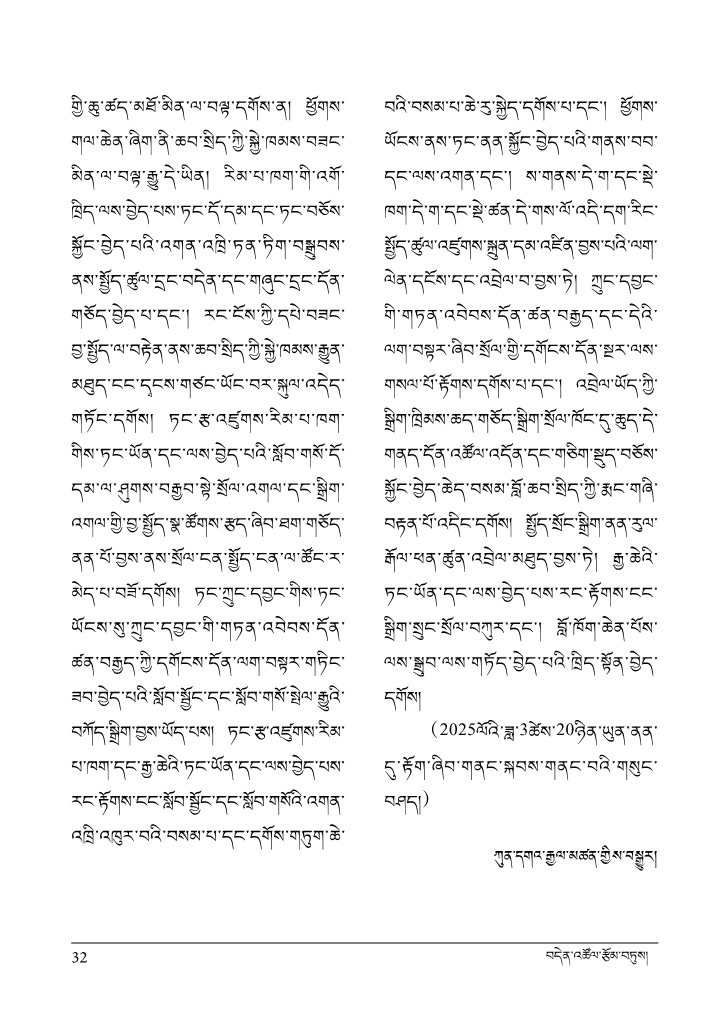 གྱི་ཆུ་ཚད་མཐོ་མིན་ལ་བལྟ་དགོས་ན། ཕྱོགས་
གལ་ཆེན་ཞིག་ནི་ཆབ་སྲིད་ཀྱི་སྐྱེ་ཁམས་བཟང་
མིན་ལ་བལྟ་རྒྱུ་དེ་ཡིན། རིམ་པ་ཁག་གི་འགོ་
ཁྲིད་ལས་བྱེད་པས་ཏང་དོ་དམ་དང་ཏང་བཅོས་
སྐྱོང་བྱེད་པའི་འགན་འཁྲི་ཏན་ཏིག་བསྒྲུབས་
ནས་སྤྱོད་ཚུལ་དྲང་བདེན་དང་གཞུང་དྲང་དོན་
གཅོད་བྱེད་པ་དང་། རང་ངོས་ཀྱི་དཔེ་བཟང་
བྱ་སྤྱོད་ལ་བརྟེན་ནས་ཆབ་སྲིད་ཀྱི་སྐྱེ་ཁམས་རྒྱུན་
མཐུད་ངང་དྭངས་གཙང་ཡོང་བར་སྐུལ་འདེད་
གཏོང་དགོས། ཏང་རྩ་འཛུགས་རིམ་པ་ཁག་
གིས་ཏང་ཡོན་དང་ལས་བྱེད་པའི་སློབ་གསོ་དོ་
དམ་ལ་ཤུགས་བརྒྱབ་སྟེ་སྲོལ་འགལ་དང་སྒྲིག་
འགལ་གྱི་བྱ་སྤྱོད་སྣ་ཚོགས་རྩད་ཞིབ་ཐག་གཅོད་
ནན་པོ་བྱས་ནས་སྲོལ་ངན་སྤྱོད་ངན་ལ་ཚོང་ར་
མེད་པ་བཟོ་དགོས། ཏང་ཀྲུང་དབྱང་གིས་ཏང་
ཡོངས་སུ་ཀྲུང་དབྱང་གི་གཏན་འབེབས་དོན་
ཚན་བརྒྱད་ཀྱི་དགོངས་དོན་ལག་བསྟར་གཏིང་
ཟབ་བྱེད་པའི་སློབ་སྦྱོང་དང་སློབ་གསོ་སྤེལ་རྒྱུའི་
བཀོད་སྒྲིག་བྱས་ཡོད་པས། ཏང་རྩ་འཛུགས་རིམ་
པ་ཁག་དང་རྒྱ་ཆེའི་ཏང་ཡོན་དང་ལས་བྱེད་པས་
རང་རྟོགས་ངང་སློབ་སྦྱོང་དང་སློབ་གསོའི་འགན་
འཁྲི་འཁུར་བའི་བསམ་པ་དང་དགོས་གཏུག་ཆེ་
བའི་བསམ་པ་ཆེ་རུ་སྐྱེད་དགོས་པ་དང་། ཕྱོགས་
ཡོངས་ནས་ཏང་ནན་སྐྱོང་བྱེད་པའི་གནས་བབ་
དང་ལས་འགན་དང་། ས་གནས་དེ་ག་དང་སྡེ་
ཁག་དེ་ག་དང་སྡེ་ཚན་དེ་གས་ལོ་འདི་དག་རིང་
སྤྱོད་ཚུལ་འཛུགས་སྐྲུན་དམ་འཛིན་བྱས་པའི་ལག་
ལེན་དངོས་དང་འབྲེལ་བ་བྱས་ཏེ། ཀྲུང་དབྱང་
གི་གཏན་འབེབས་དོན་ཚན་བརྒྱད་དང་དེའི་
ལག་བསྟར་ཞིབ་སྲོལ་གྱི་དགོངས་དོན་སྔར་ལས་
གསལ་པོ་རྟོགས་དགོས་པ་དང་། འབྲེལ་ཡོད་ཀྱི་
སྒྲིག་ཁྲིམས་ཆད་གཅོད་སྒྲིག་སྲོལ་ཁོང་དུ་ཆུད་དེ་
གནད་དོན་འཚོལ་འདོན་དང་གཅིག་སྡུད་བཅོས་
སྐྱོང་བྱེད་ཆེད་བསམ་བློ་ཆབ་སྲིད་ཀྱི་རྨང་གཞི་
བརྟན་པོ་འདིང་དགོས། སྤྱོད་སྲོང་སྒྲིག་ནན་རུལ་
རྒོལ་ཕན་ཚུན་འབྲེལ་མཐུད་བྱས་ཏེ། རྒྱ་ཆེའི་
ཏང་ཡོན་དང་ལས་བྱེད་པས་རང་རྟོགས་ངང་
སྒྲིག་སྲུང་སྲོལ་བཀུར་དང་། བློ་ཁོག་ཆེན་པོས་
ལས་སྒྲུབ་ལས་གཏོད་བྱེད་པའི་ཁྲིད་སྟོན་བྱེད་
དགོས།
(2025ལོའི་ཟླ་3ཚེས་20ཉིན་ཡུན་ནན་
དུ་རྟོག་ཞིབ་གནང་སྐབས་གནང་བའི་གསུང་
བཤད།)
ཀུན་དགའ་རྒྱལ་མཚན་གྱིས་བསྒྱུར།
32
བདེན་འཚོལ་རྩོམ་བཏུས།